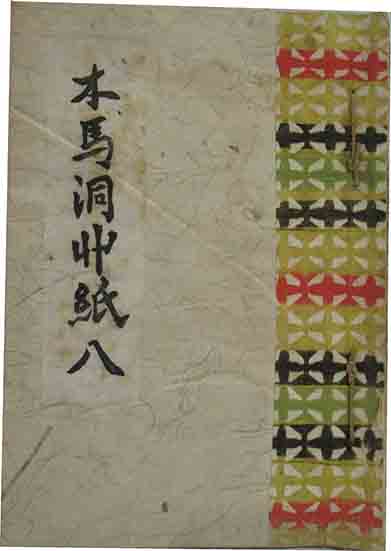 木馬洞艸紙八